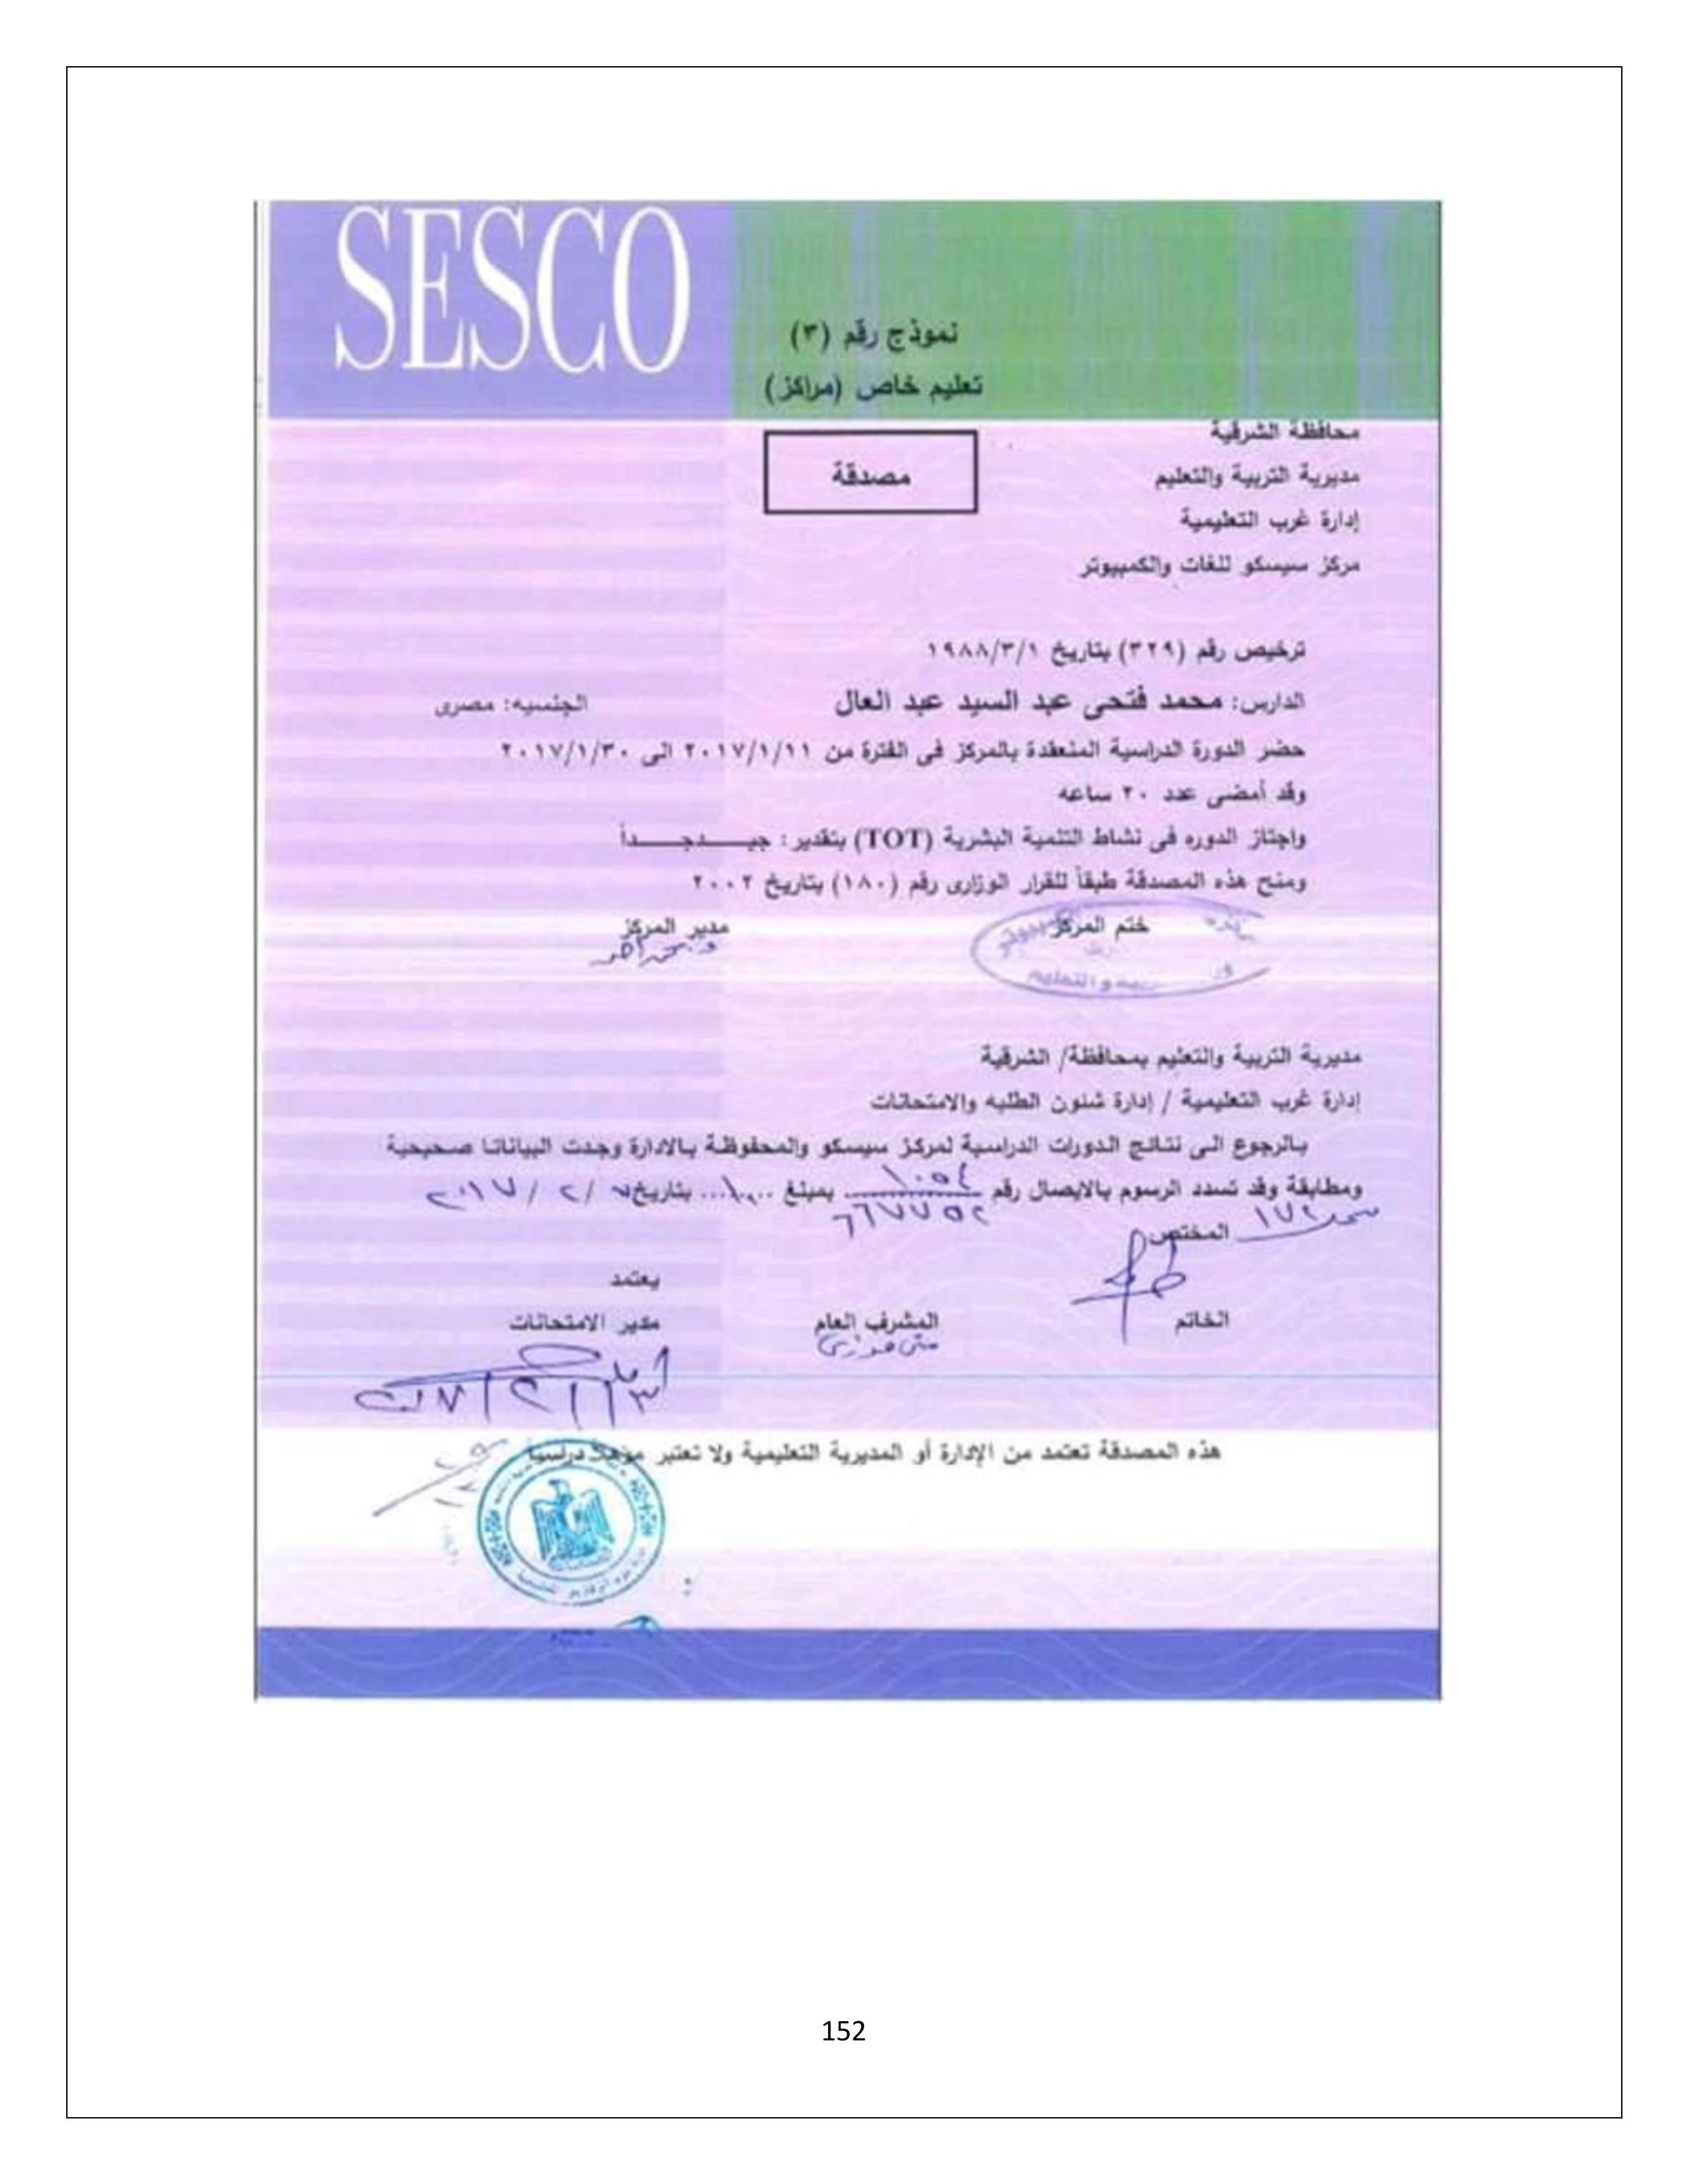 SESCO
نموذج رقم (٣)
تعليم خاص (مراكز)
محافظة الشرقية
مصدقة
مديرية التربية والتعليم
إدارة غرب التعليمية
مركز سيسكو للغات والكمبيوتر
ترخيص رقم (٣٢٩) بتاريخ ١٩٨٨/٣/١
الدارس: محمد فتحى عبد السيد عبد العال الجنسيه: مصرى
حضر الدورة الدراسية المنعقدة بالمركز فى الفترة من ٢٠١٧/١/١١ الى ٢٠١٧/١/٣٠
وقد أمضى عدد ٢٠ ساعه
واجتاز الدوره فى نشاط التنمية البشرية (TOT) بتقدير: جيـــدجـــداً
ومنح هذه المصدقة طبقاً للقرار الوزارى رقم (١٨٠) بتاريخ ٢٠٠٢
ختم المركز مدير المركز
والتعليم
مديرية التربية والتعليم بمحافظة/ الشرقية
إدارة غرب التعليمية / إدارة شئون الطلبه والامتحانات
بالرجوع الى نتائج الدورات الدراسية لمركز سيسكو والمحفوظة بالادارة وجدت البياناتا صحيحية
ومطابقة وقد تسدد الرسوم بالايصال رقم ١٠٥٤ بمبلغ بتاريخ ٧ / ٢ / ٢٠١٧
٦٦٧٧٥٢
المختص
يعتمد
الخاتم المشرف العام مدير الامتحانات
هذه المصدقة تعتمد من الإدارة أو المديرية التعليمية ولا تعتبر مؤهلاً دراسياً
152